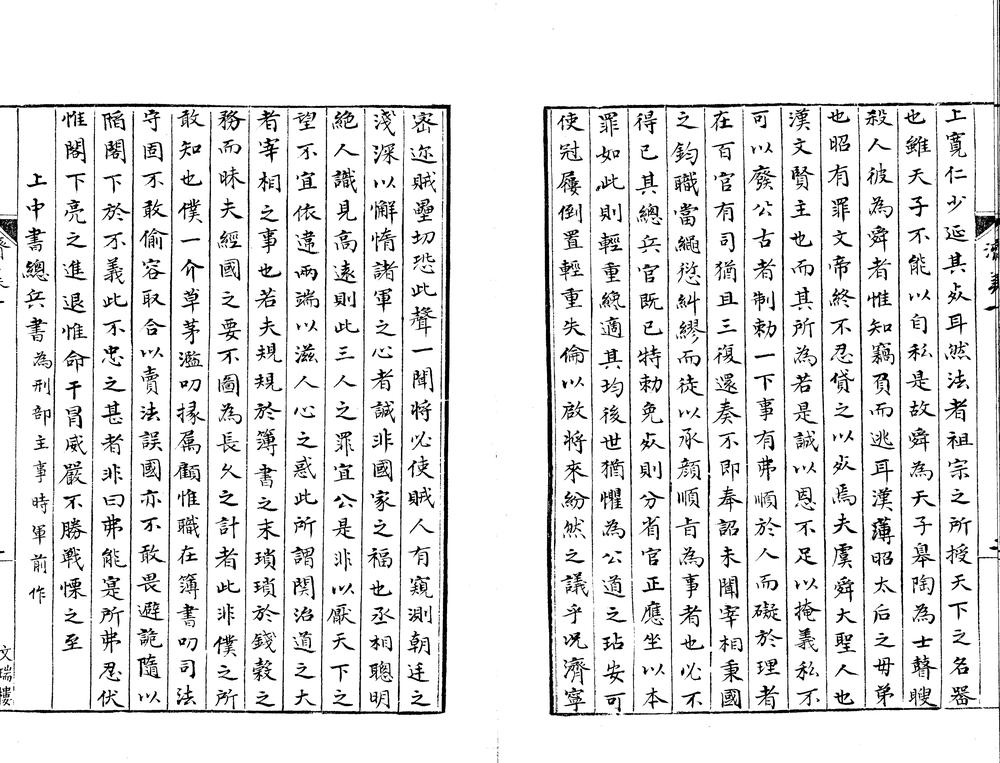 上寛仁少延其死耳然法者祖宗之所授天下之名器
也雖天子不能以自私是故舜為天子皋陶為士瞽瞍
殺人彼為舜者惟知竊負而逃耳漢薄昭太后之毋弟
也昭有罪文帝終不忍貸之以死焉夫虞舜大聖人也
漢文賢主也而其所為若是誠以恩不足以掩義私不
可以廢公古者制勅一下事有弗順於人而礙於理者
在百官有司猶且三復還奏不即奉詔未聞宰相秉國
之鈞職當繩愆糾繆而徒以承顔順㫖為事者也必不
得已其總兵官既已特勅免死則分省官正應坐以本
罪如此則輕重緫適其均後世猶懼為公道之玷安可
使冠屨倒置輕重失倫以啟將來紛然之議乎况濟寧
密迩賊壘切恐此聲一聞將必使賊人有窺測朝廷之
淺深以懈惰諸軍之心者誠非國家之福也丞相聰明
絶人識見高逺則此三人之罪宜公是非以厭天下之
望不宜依違兩端以滋人心之惑此所謂関治道之大
者宰相之事也若夫規規於簿書之末瑣瑣於錢榖之
務而昧夫經國之要不圖為長久之計者此非僕之所
敢知也僕一介草茅濫叨掾属顧惟職在簿書叨司法
守固不敢偷容取合以賣法誤國亦不敢畏避詭隨以
陷閣下於不義此不忠之甚者非曰弗能寔所弗忍伏
惟閣下亮之進退惟命干冒威嚴不勝戰慄之至
上中書總兵書為刑部主事時軍前作
文瑞樓